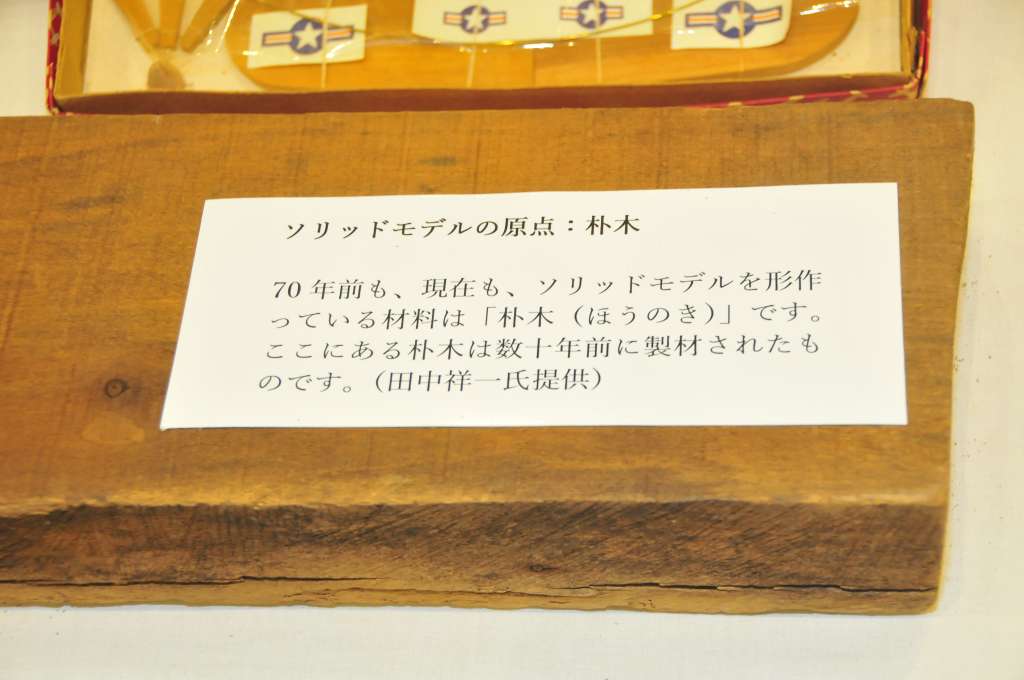 ソリッドモデルの原点：朴木
70年前も、現在も、ソリッドモデルを形作
っている材料は「朴木（ほうのき）」です。
ここにある朴木は数十年前に製材されたも
のです。（田中祥一氏提供）